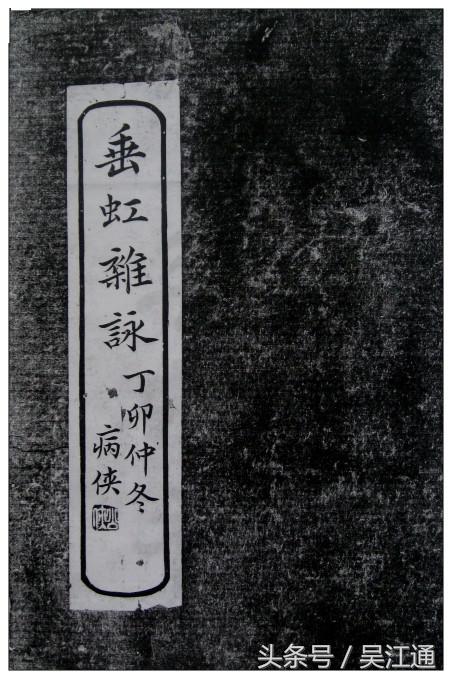 垂虹雜詠
丁卯仲冬
病侠
头条号 / 吴江通